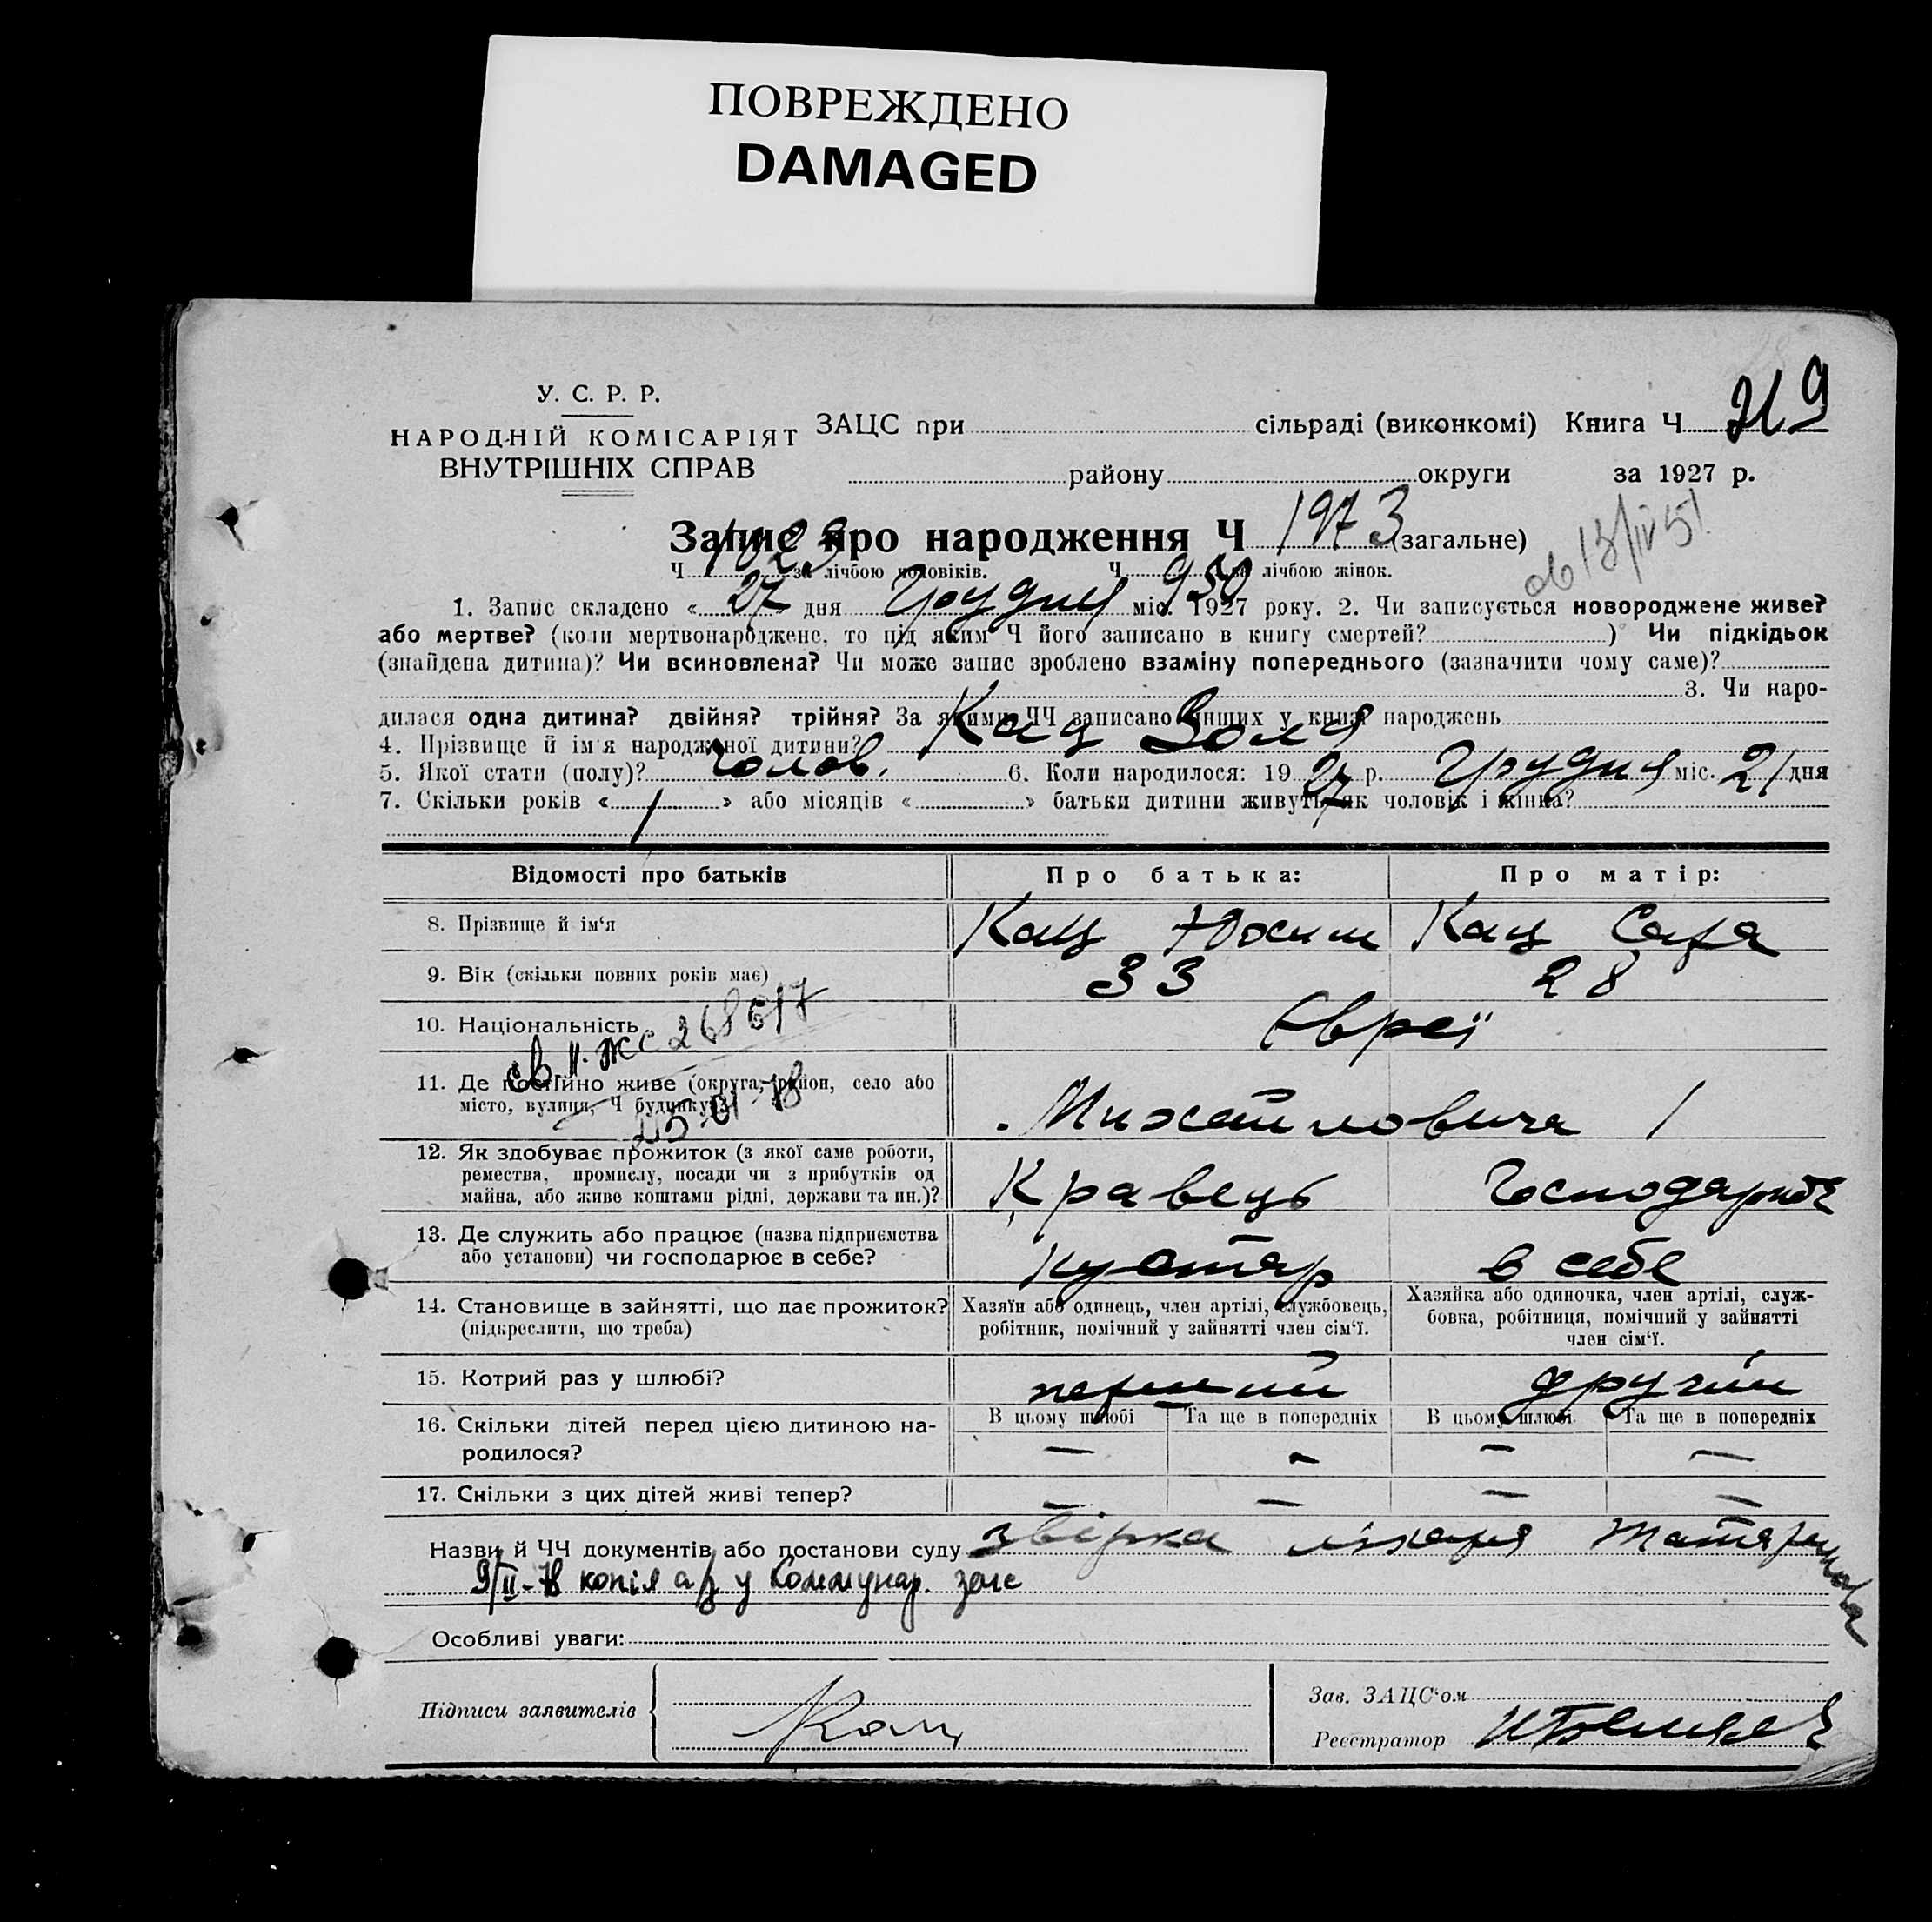 ПОВРЕЖДЕНО
DAMAGED
У. С. Р. Р.
НАРОДНІЙ КОМІСАРІЯТ
ВНУТРІШНІХ СПРАВ
ЗАЦС при сільраді (виконкомі) Книга Ч 219
району округи за 1927 р.
Запис про народження Ч 1973 (загальне)
Ч 1023 за лічбою чоловіків. Ч 950 за лічбою жінок.
13/IV 51
1. Запис складено « 27 » дня Грудня міс. 1927 року. 2. Чи записується новороджене живе?
або мертве? (коли мертвонароджене, то під яким Ч його записано в книгу смертей? ) Чи підкідьок
(знайдена дитина)? Чи всиновлена? Чи може запис зроблено взаміну попереднього (зазначити чому саме)?
3. Чи наро-
дилася одна дитина? двійня? трійня? За якими ЧЧ записано інших у книзі народжень
4. Прізвище й ім'я народженої дитини? Кац Золя
5. Якої стати (полу)? Чолов. 6. Коли народилося: 19 27 р. Грудня міс. 21 дня
7. Скільки років « 1 » або місяців « » батьки дитини живуть як чоловік і жінка?
Відомості про батьків Про батька: Про матір:
8. Прізвище й ім'я Кац Юосип Кац Сара
9. Вік (скільки повних років має) 33 28
10. Національність Євреї
св. II-ЖС 268617
11. Де постійно живе (округа, район, село або
місто, вулиця, Ч будинку)? Михайловича 1
25-01-78
12. Як здобуває прожиток (з якої саме роботи,
ремества, промислу, посади чи з прибутків од
майна, або живе коштами рідні, держави та ин.)? Кравець Господарює
13. Де служить або працює (назва підприємства
або установи) чи господарює в себе? Кустар в себе
14. Становище в зайнятті, що дає прожиток?
(підкреслити, що треба)
Хазяїн або одинець, член артілі, службовець,
робітник, помічний у зайнятті член сім'ї.
Хазяйка або одиночка, член артілі, служ-
бовка, робітниця, помічний у зайнятті
член сім'ї.
15. Котрий раз у шлюбі? перший другий
16. Скільки дітей перед цією дитиною на-
родилося?
В цьому шлюбі Та ще в попередніх В цьому шлюбі Та ще в попередніх
— — — —
17. Скільки з цих дітей живі тепер? — — — —
Назви й ЧЧ документів або постанови суду звірка лікаря
9/II-78 копія а/з у Коммунар. загс
Особливі уваги:
Підписи заявителів Кац
Зав. ЗАЦС'ом
Реєстратор